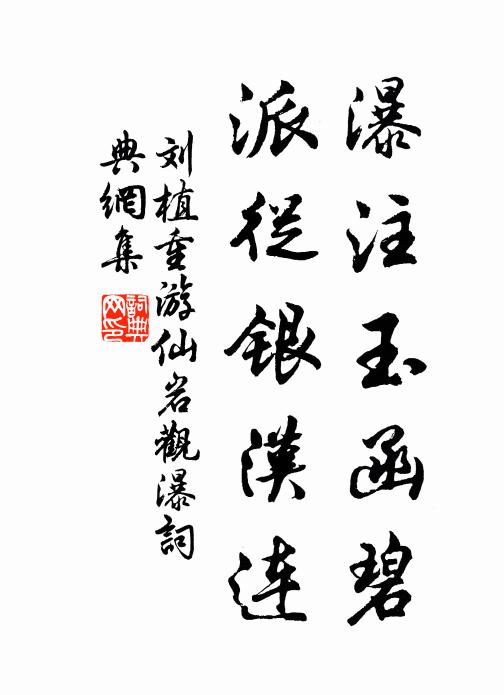 瀑注玉函碧
派從銀漢連
刘植重游仙岩觀瀑詞
典網集
詞典网印